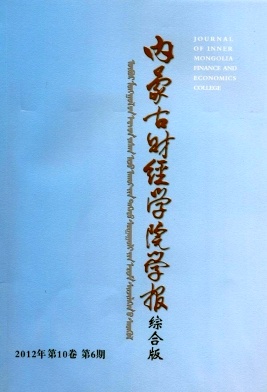 JOURNAL
OF INNER
MONGOLIA
FINANCE AND
ECONOMICS
COLLEGE
内蒙古财经学院学报
综合版
2012年第10卷 第6期